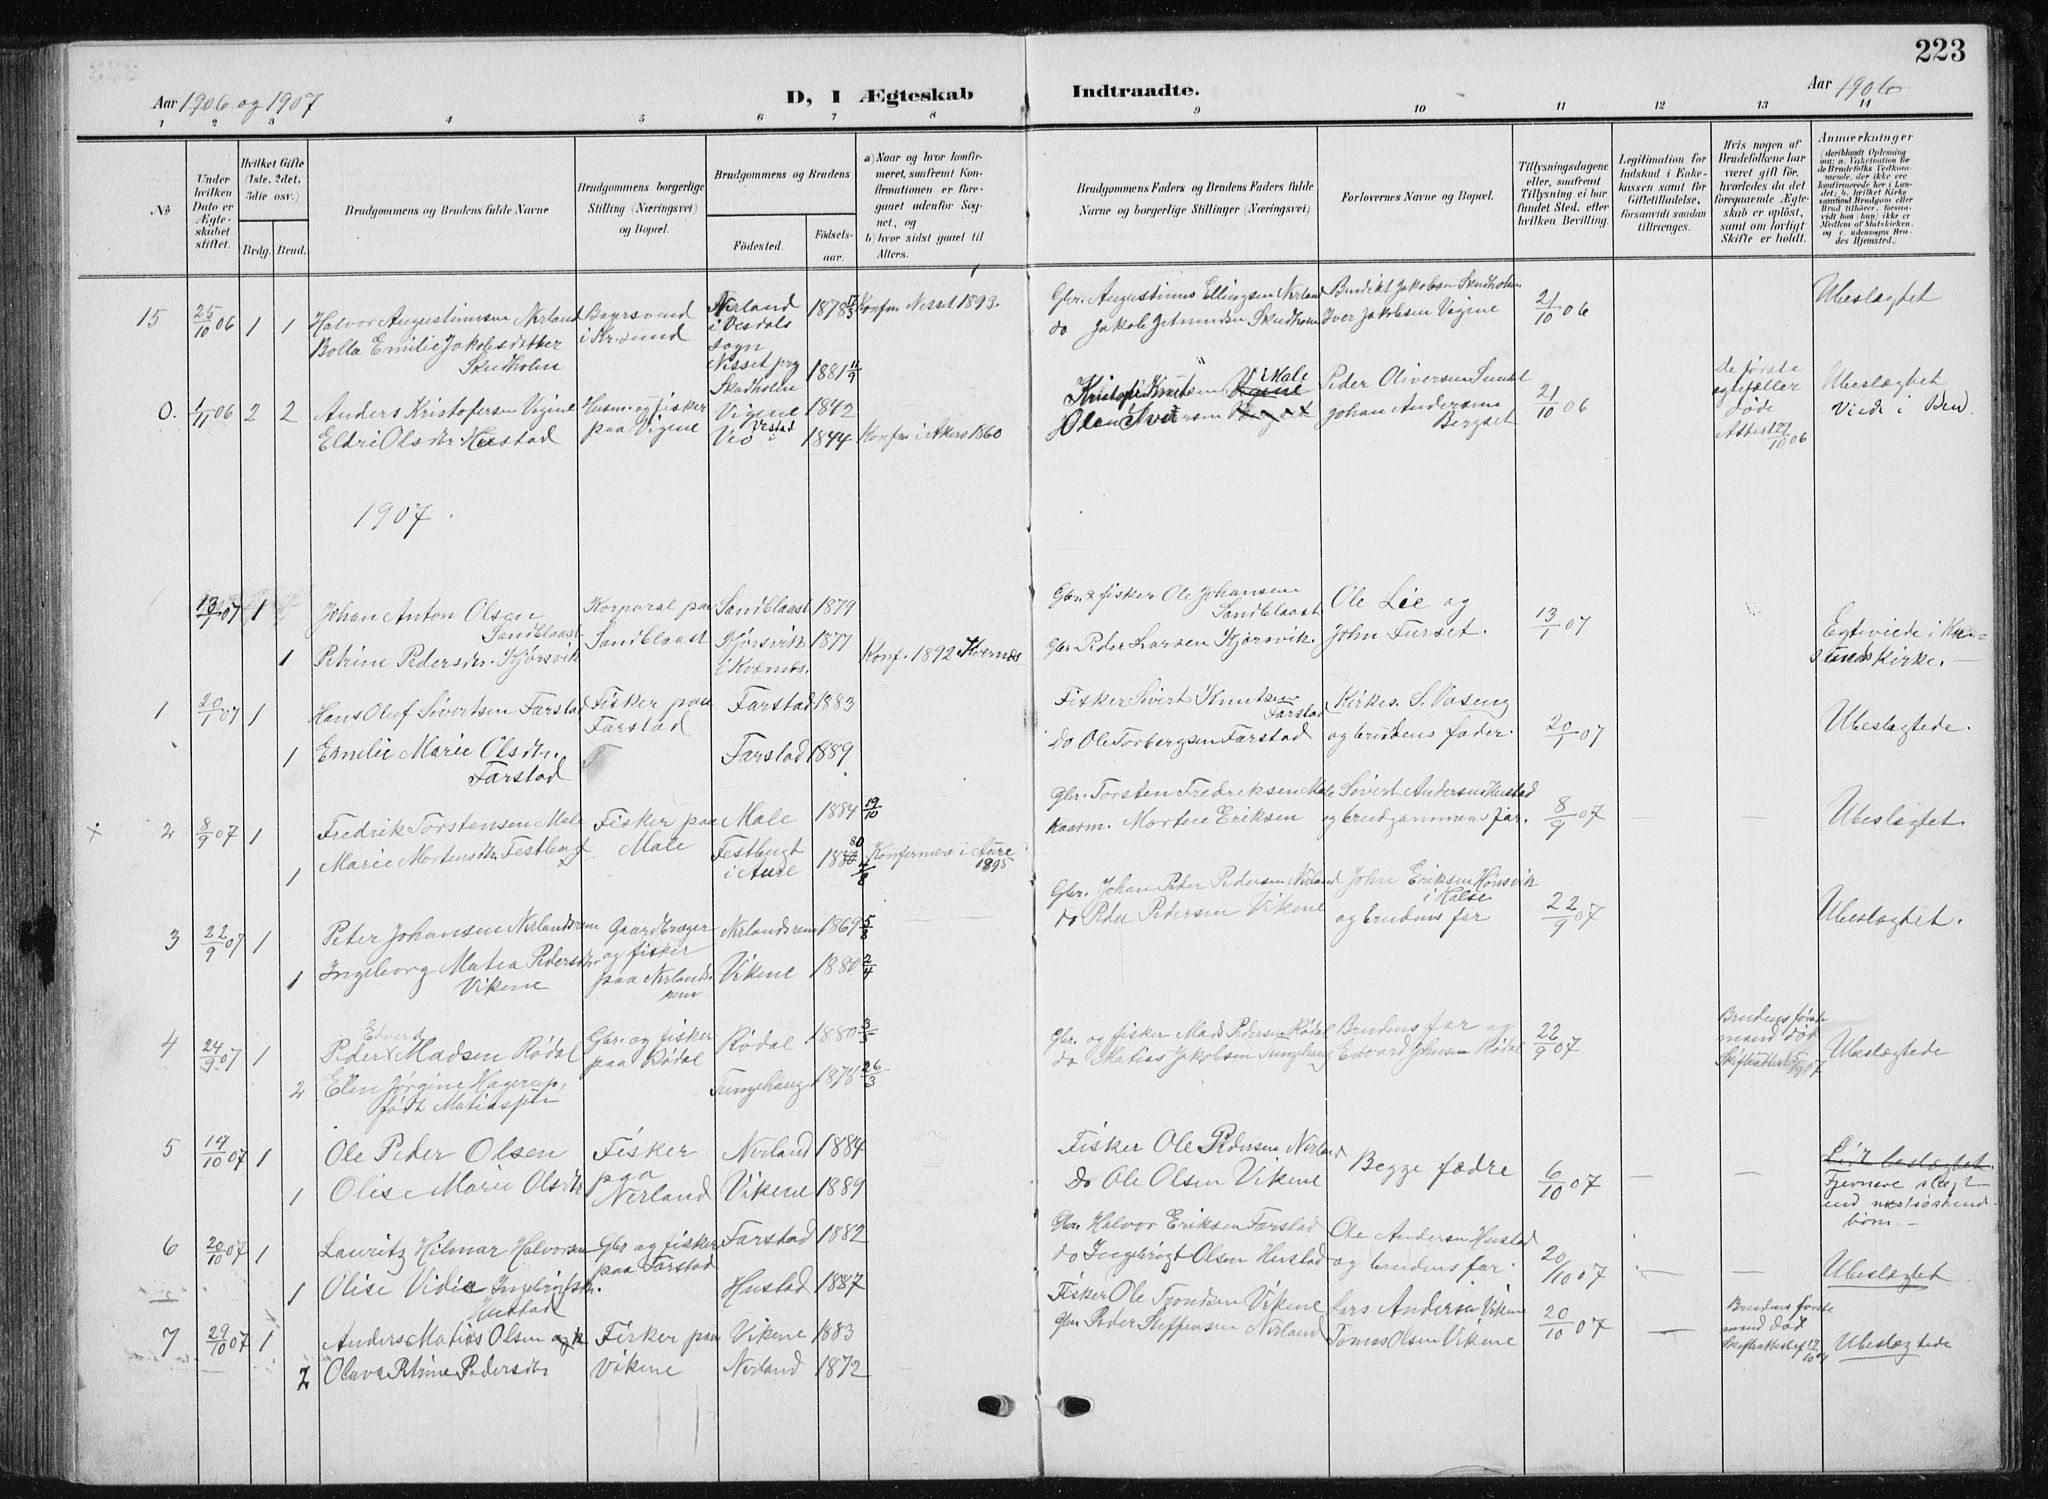 223
Aar 1906 og 1907
D, I Ægteskab Indtraadte.
Aar 1906
1 2 3 4 5 6 7 8 9 10 11 12 13 14
No
Under hvilken Dato er Ægteskabet stiftet.
Hvilket Gifte (1ste, 2det, 3die osv.)
Brdg. Brud.
Brudgommens og Brudens fulde Navne
Brudgommens borgerlige Stilling (Næringsvei) og Bopæl.
Brudgommens og Brudens
Fødested.
Fødselsaar.
a) Naar og hvor konfirmeret, saafremt Konfirmationen er foregaaet udenfor Sognet, og
b) hvor sidst gaaet til Alters.
Brudgommens Faders og Brudens Faders fulde Navne og borgerlige Stillinger (Næringsvei)
Forlovernes Navne og Bopæl.
Tillysningsdagene eller, saafremt Tillysning ei har fundet Sted, efter hvilken Bevilling.
Legitimation for Indskud i Enkekassen samt for Giftetilladelse, forsaavidt saadan tiltrænges.
Hvis nogen af Brudefolkene har været gift før, hvorledes da det foregaaende Ægteskab er opløst, samt om lovligt Skifte er holdt.
Anmærkninger (deriblandt Oplysning om: a. Vakcination for de Brudefolks Vedkommende, der ikke ere konfirmerede her i Landet; b. hvilket Kirkesamfund Brudgom eller Brud tilhører, forsaavidt han (hun) ikke er Medlem af Statskirken, og c. udensogns Brudes Hjemsted.)
15 25/10 06 1 1 Halvor Augustinusen Nerland
Bolla Emilie Jakobsdatter Skudholm
i Kr.sund
Nerland i Vesdals sogn Nesset prg
Skudholm
1878 17/3 Konfm Nesset 1893.
1881 11/9
Gbr. Augustinus Ellingsen Nerland
do Jakob Skudholm
Bendikt Jakobsen Skudholm
Iver Jakobsen Vigine
21/10 06
Ubeslægtet
0. 1/11 06 2 2 Anders Kristofersen Vigine
Eldri Olsdtr. Hustad
Husm. og fisker paa Vigene
Vigene 1842
Vestad 1844 Konfm i Akerø 1860
Kristofer Knutsen Male
Peder Oliversen
Johan Andersen Bergset
21/10 06
De første egtefæller døde
Attest 29/10 06
Ubeslægtet
Viede i Bud
1907.
13/1 07 1 Johan Anton Olsen Sandblaast
1 Petrine Pedersdtr. Kjørsvik
Korporal paa Sandblaast
Sandblaast 1879
Kjørsvik i Kvernes. 1877 Konf. 1892 Kvernes
Gbr. & fisker Ole Johansen Sandblaast
Gbr. Peder Larsen Kjørsvik.
Ole Lie og
John Furset.
13/1 07
Egteviede i Kr.sunds Kirke.
1 20/1 07 1 Hans Oluf Sivertsen Farstad
1 Emilie Marie Olsdtr. Farstad
Fisker paa Farstad
Farstad 1883
Farstad 1889
Fisker Sivert Knutsen Farstad
do Ole Torbergsen Farstad
Kirkes. S. Vaseng
og brudens fader.
20/1 07
Ubeslegtede.
2 8/9 07 1 Fredrik Torstensen Male
1 Marie Mortensdtr. Festbugt
Fisker paa Male
Male 1884 19/10
Festbugt i Aure 1880 4/8
Konfermere i Aure 1895
Gbr. Torsten Fredriksen Male
Kaarm. Morten Eriksen
Sivert Andersen Hustad
og brudgommens far.
8/9 07
Ubeslægtet
3 22/9 07 1 Peter Johansen Nerlandsrem
1 Ingeborg Matea Pedersdtr. Vikene
Gaardbruger og fisker paa Nerlandsrem
Nerlandsrem 1869 5/8
Vikene 1880 2/4
Gbr. Johan Peder Pedersen Nerland
do Peder Pedersen Vikene
John Eriksen Hønsvik i Halse
og brudens far
22/9 07
Ubeslægtet.
4 24/9 07 1 Peder Edvart Madsen Rødal
2 Elen Jørgine Hagerup, født Matiaspdtr
Gbr. og fisker paa Rødal
Rødal 1880 3/3
Tungehaug 1878 26/3
Gbr. og fisker Mads Pedersen Rødal
do Matias Jakobsen Tungehaug
Brudens far og
Edvard Johnsen Rødal
22/9 07
Brudens første mand død
Ubeslægtede
5 14/10 07 1 Ole Peder Olsen
1 Olise Marie Olsdtr
Fisker paa Nerland
Nerland 1884
Vikene 1889
Fisker Ole Pedersen Nerland
Do Ole Olsen Vikene
Begge fædre
6/10 07
Fjernere slegt end næstsøskendbørn.
6 20/10 07 1 Lauritz Hilmar Halvorsen
1 Olise Vidia Ingebrigtsdtr. Hustad
Gbr og fisker paa Farstad
Farstad 1882
Hustad 1887
Gbr. Halvor Eriksen Farstad
do Ingebrigt Olsen Hustad
Ole Andersen Hustad
og brudens far.
20/10 07
Ubeslægtet
7 29/10 07 1 Anders Matias Olsen
2 Olava Petrine Pedersdtr
Fisker paa Vikene
Vikene 1883
Nerland 1872
Fisker Ole Trondsen Vikene
Gbr Peder Steffensen Nerland
Lars Andersen Vikene
Tomas Olsen Vikene
20/10 07
Brudens første mand død
Ubeslægtede